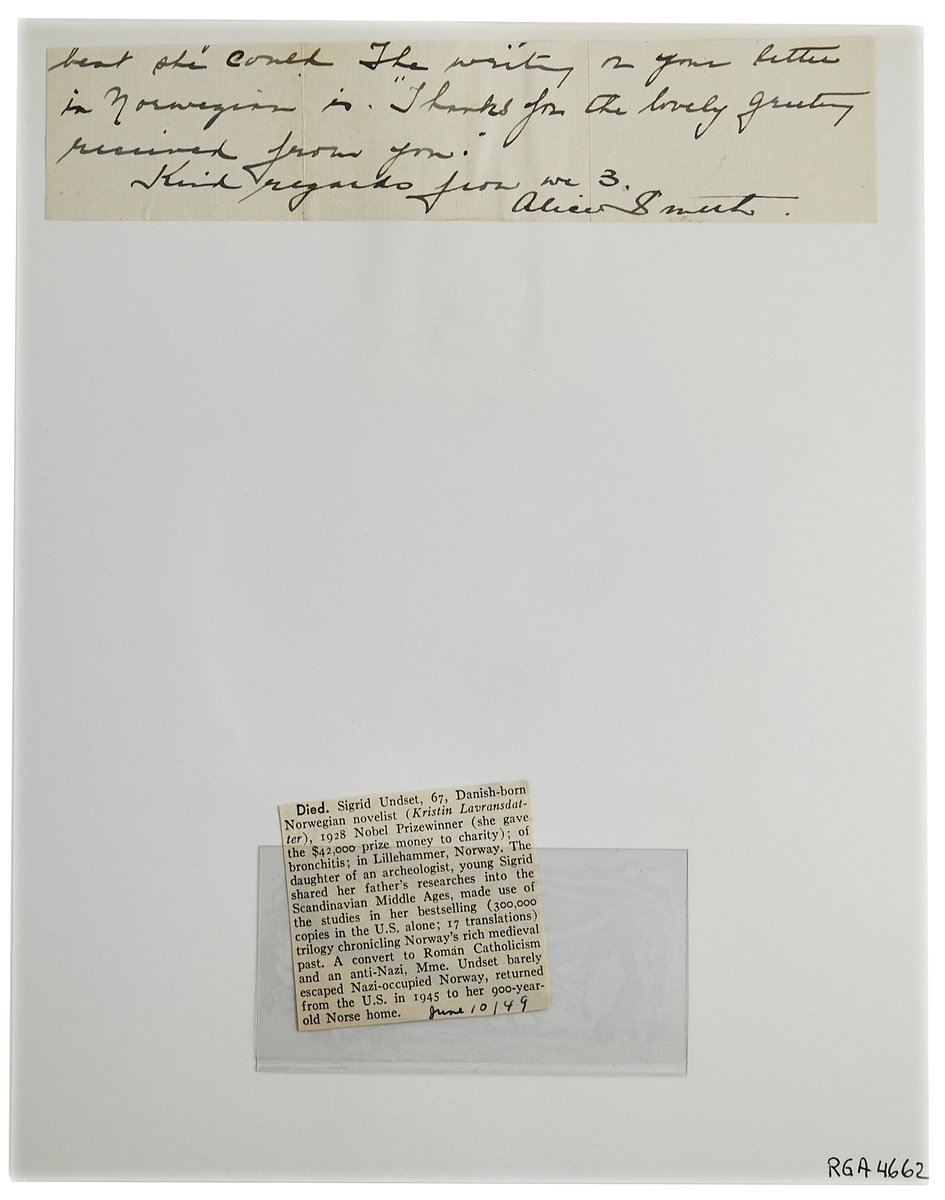 best she could The writing on your letter
in Norwegian is. "Thanks for the lovely greeting
received from you."
Kind regards from we 3.
Alice Smith.
Died. Sigrid Undset, 67, Danish-born
Norwegian novelist (Kristin Lavransdat-
ter), 1928 Nobel Prizewinner (she gave
the $42,000 prize money to charity); of
bronchitis; in Lillehammer, Norway. The
daughter of an archeologist, young Sigrid
shared her father's researches into the
Scandinavian Middle Ages, made use of
the studies in her bestselling (300,000
copies in the U.S. alone; 17 translations)
trilogy chronicling Norway's rich medieval
past. A convert to Roman Catholicism
and an anti-Nazi, Mme. Undset barely
escaped Nazi-occupied Norway, returned
from the U.S. in 1945 to her 900-year-
old Norse home. June 10/49
RGA 4662